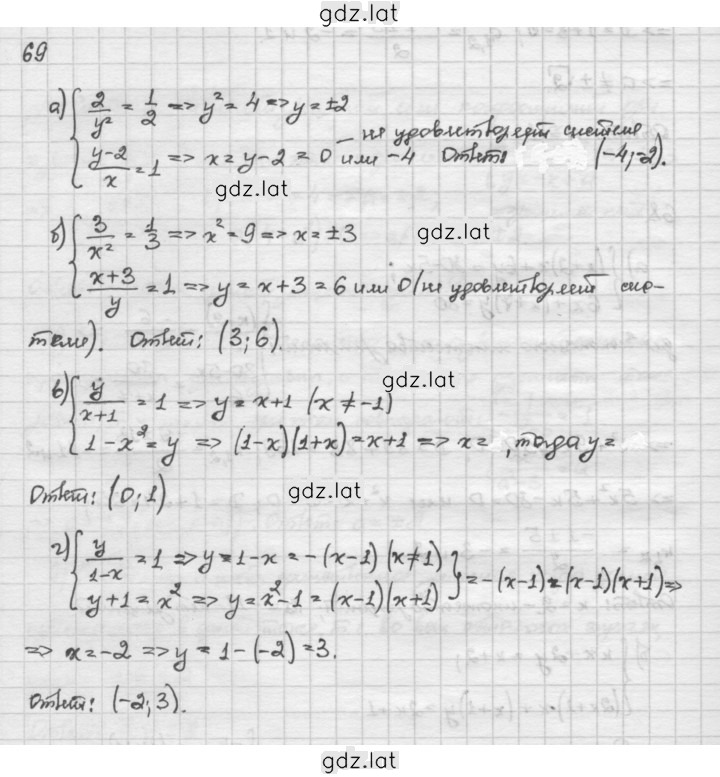 gdz.lat
69
а) { 2/y² = 1/2 => y² = 4 => y = ±2
(y-2)/x = 1 => x = y - 2 = 0 или -4 – не удовлетворяет системе Ответ: (-4; -2).
gdz.lat
б) { 3/x² = 1/3 => x² = 9 => x = ±3
gdz.lat
(x+3)/y = 1 => y = x + 3 = 6 или 0 (не удовлетворяет сис-
теме). Ответ: (3; 6).
gdz.lat
в) { y/(x+1) = 1 => y = x+1 (x ≠ -1)
1 - x² = y => (1-x)(1+x) = x+1 => x = , тогда y =
Ответ: (0; 1)
gdz.lat
г) { y/(1-x) = 1 => y = 1-x = -(x-1) (x ≠ 1)
y+1 = x² => y = x²-1 = (x-1)(x+1) } = -(x-1) = (x-1)(x+1) =>
=> x = -2 => y = 1 - (-2) = 3.
Ответ: (-2; 3).
gdz.lat